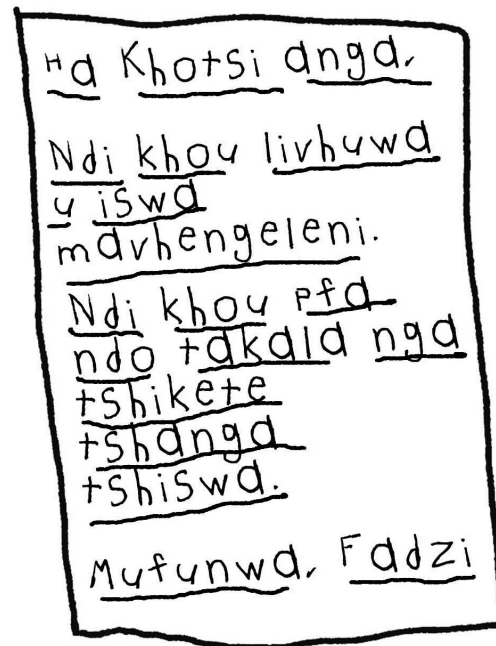 Ha Khotsi anga,
Ndi khou livhuwa
u iswa
mavhengeleni.
Ndi khou pfa
ndo takala nga
tshikete
tshanga
tshiswa.
Mufunwa, Fadzi